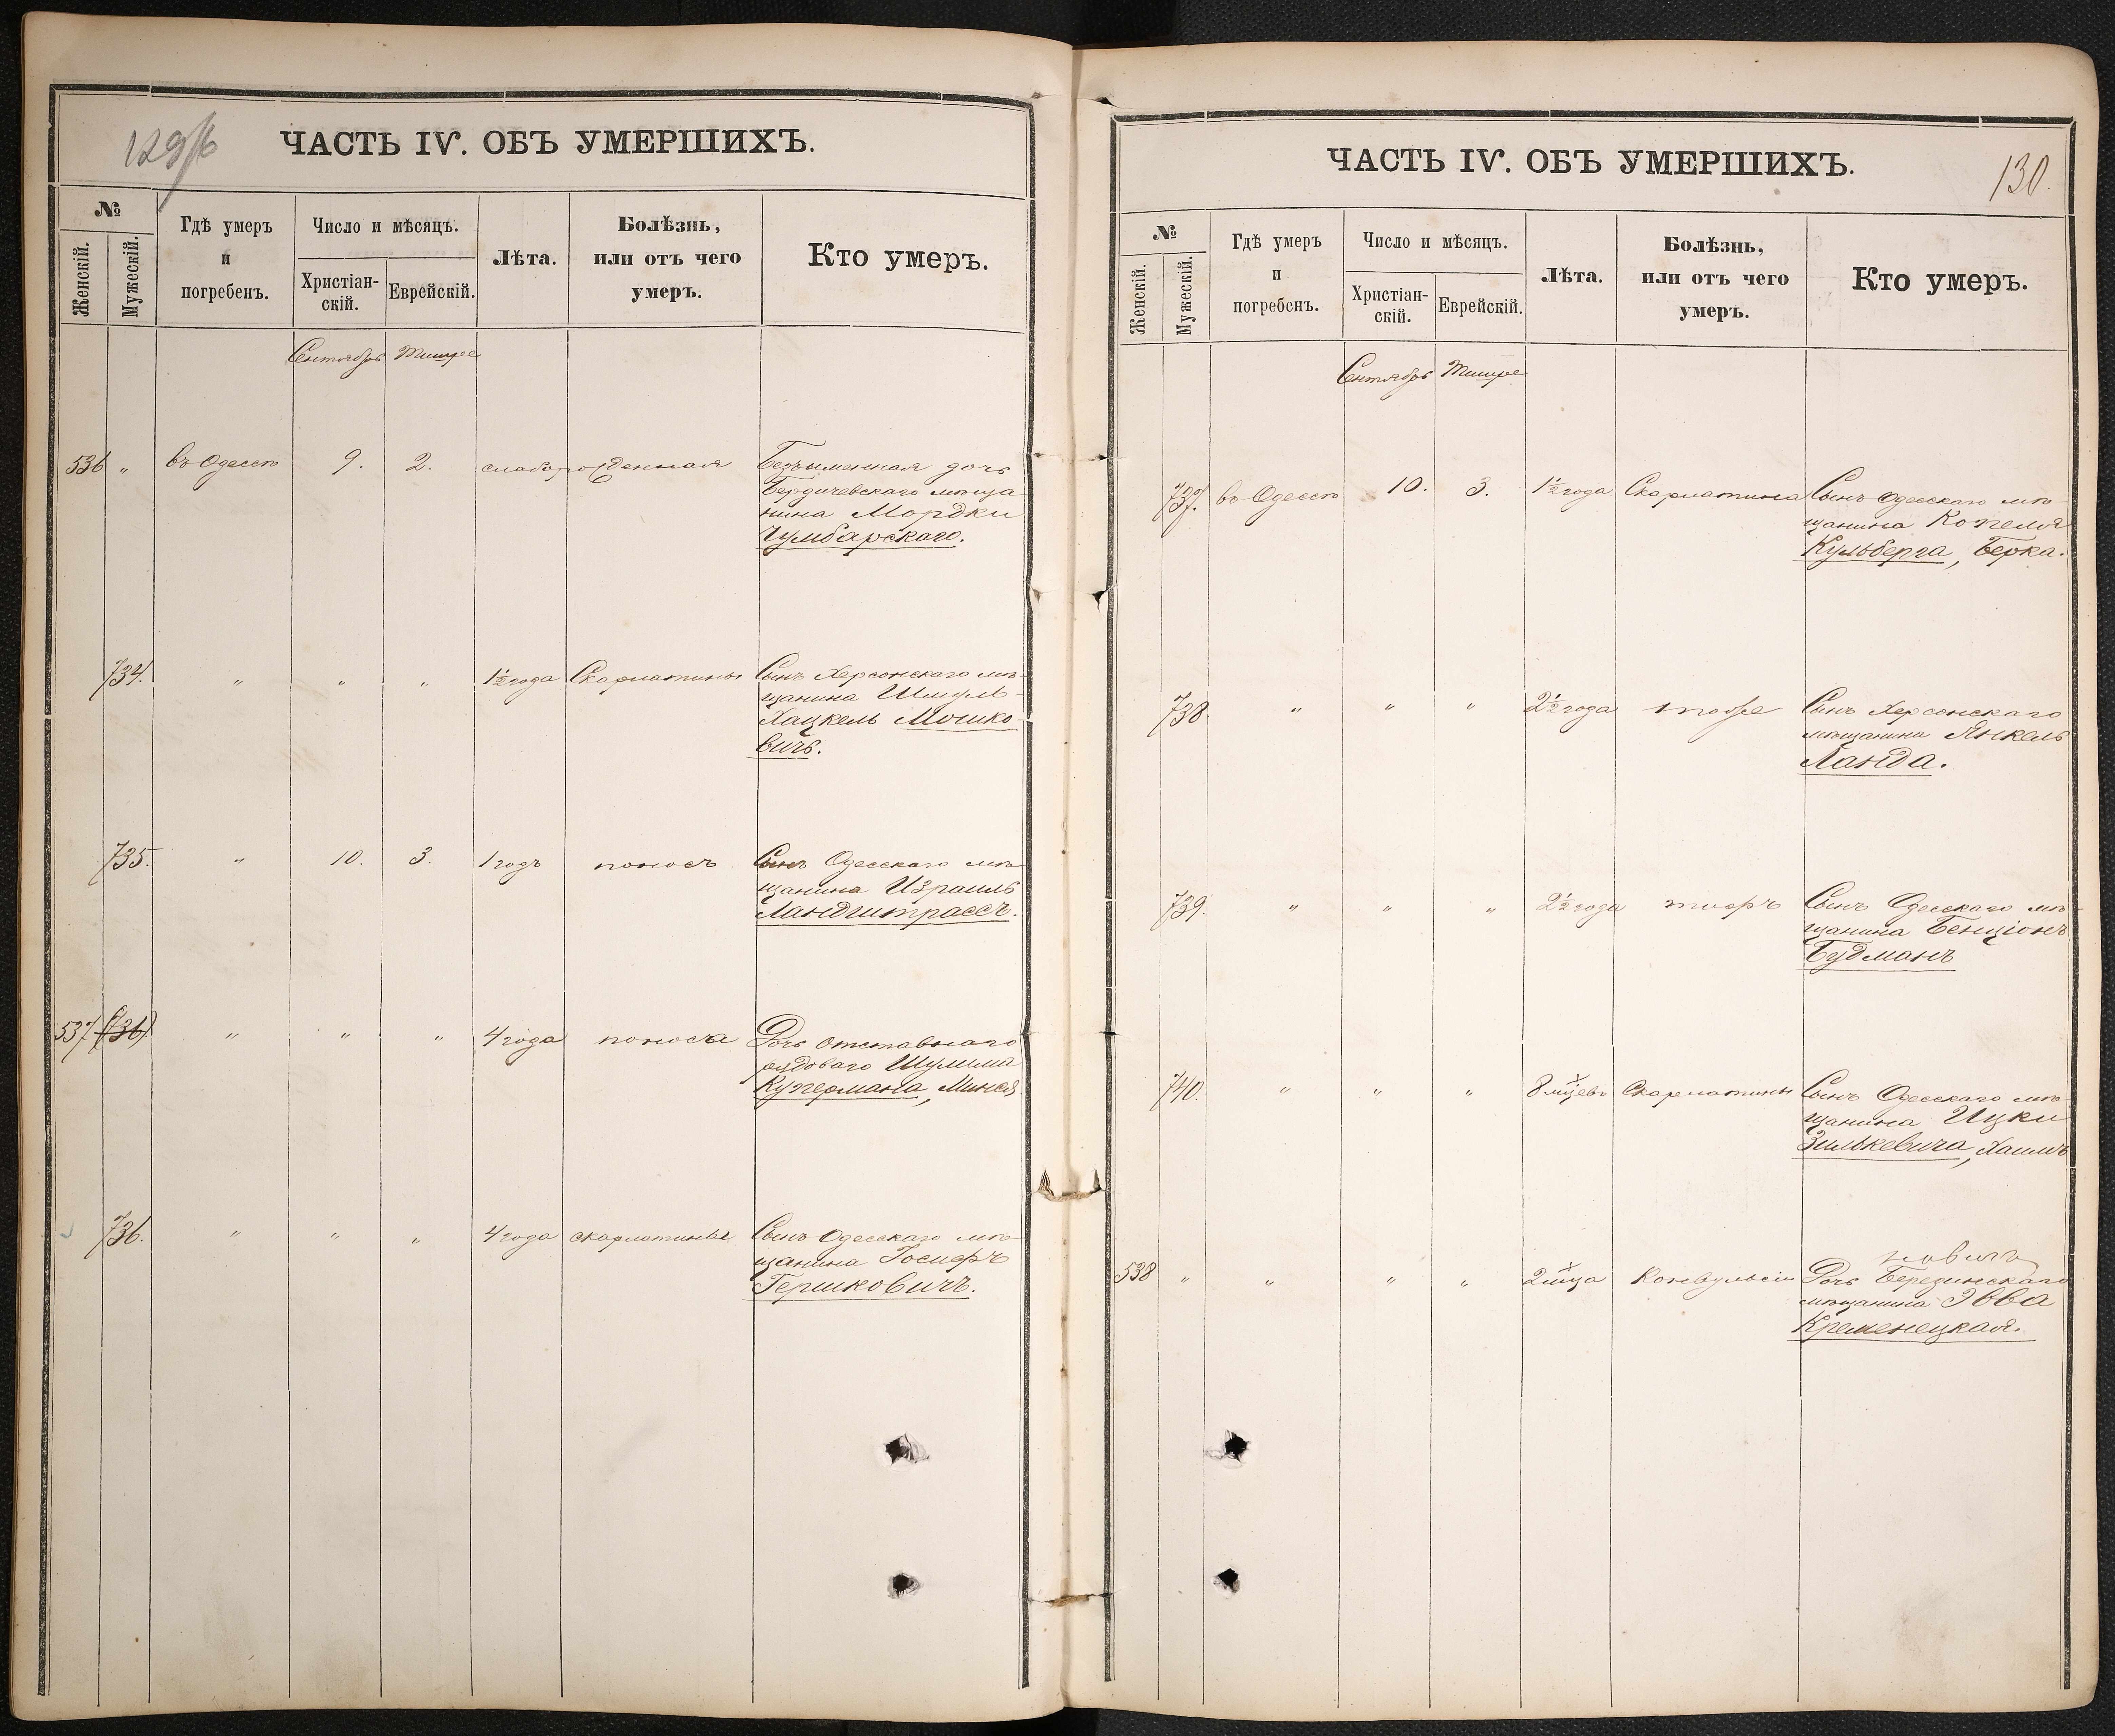 129/б
ЧАСТЬ IV. ОБЪ УМЕРШИХЪ.
№
Женскій.
Мужескій.
Гдѣ умеръ
и
погребенъ.
Число и мѣсяцъ.
Христіан-
скій.
Еврейскій.
Лѣта.
Болѣзнь,
или отъ чего
умеръ.
Кто умеръ.
Сентябрь Тишре
536 „ въ Одессѣ 9. 2. слаборожденная Безъименная дочь
Бердичевскаго мѣща
нина Мордки
Чумбарскаго.
734. „ „ „ 1½ года Скарлатины Сынъ Херсонскаго мѣ-
щанина Шмуль-
Хацкель Мошко-
вичъ.
735. „ 10. 3. 1 годъ поносъ Сынъ Одесскаго мѣ-
щанина Израиль
Ландштрассъ.
537 (736) „ „ „ 4 года поноса Дочь отставнаго
рядоваго Шулима
Купермана, Миндя
736. „ „ „ 4 года скарлатины Сынъ Одесскаго мѣ-
щанина Іосифъ
Гершковичъ.
ЧАСТЬ IV. ОБЪ УМЕРШИХЪ.
130.
№
Женскій.
Мужескій.
Гдѣ умеръ
и
погребенъ.
Число и мѣсяцъ.
Христіан-
скій.
Еврейскій.
Лѣта.
Болѣзнь,
или отъ чего
умеръ.
Кто умеръ.
Сентябрь Тишре
737. въ Одессѣ 10. 3. 1½ года Скарлатина Сынъ Одесскаго мѣ-
щанина Копеля
Кульберга, Берка.
738. „ „ „ 2½ года тоже Сынъ Херсонскаго
мѣщанина Янкель
Ланда.
739. „ „ „ 2½ года тифъ Сынъ Одесскаго мѣ-
щанина Бенціонъ
Будманъ
740. „ „ „ 8 мцевъ Скарлатины Сынъ Одесскаго мѣ-
щанина Ицки
Зилькевича, Хаимъ
538 „ „ „ „ 2 мца Конвульсіи Дочь Березинскаго
мѣщанина Эвва
Кременецкая.